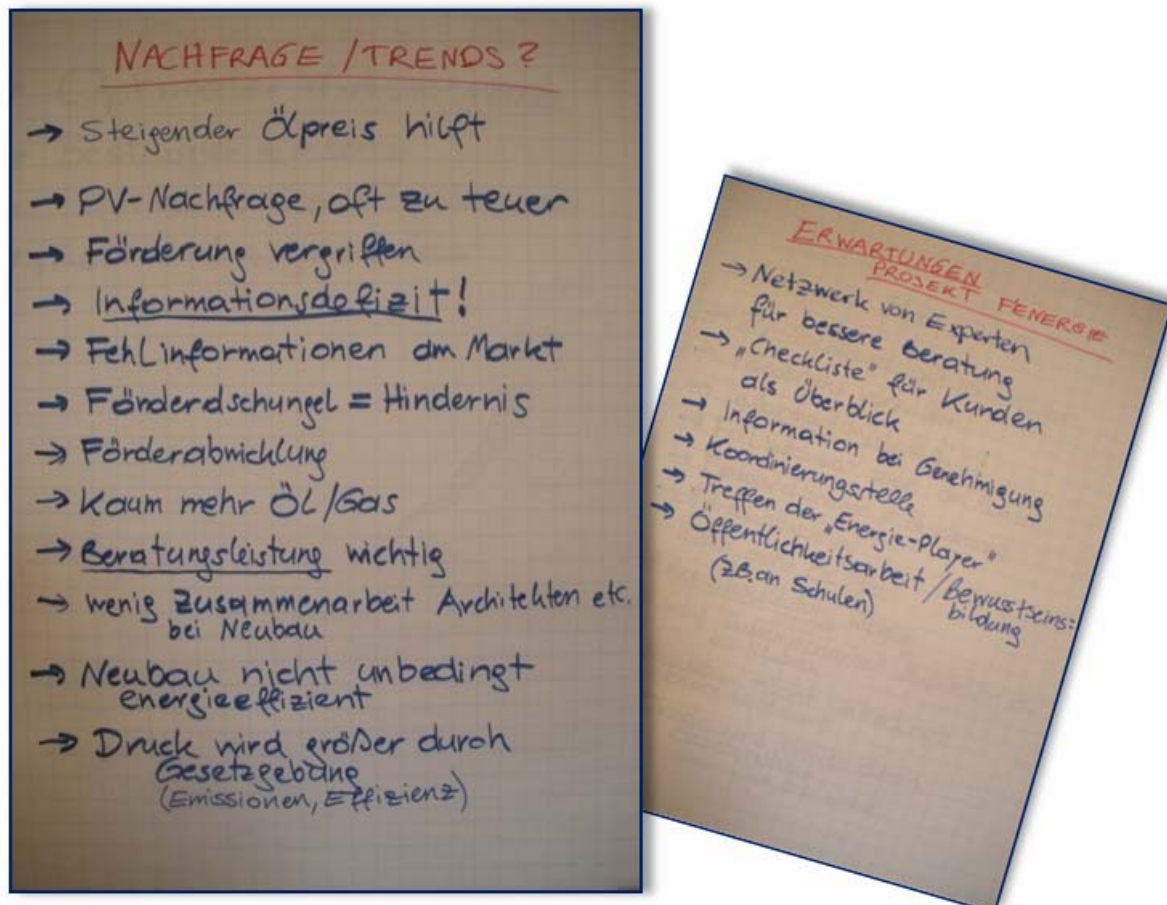 NACHFRAGE / TRENDS?
→ Steigender Ölpreis hilft
→ PV-Nachfrage, oft zu teuer
→ Förderung vergriffen
→ Informationsdefizit!
→ Fehlinformationen am Markt
→ Förderdschungel = Hindernis
→ Förderabwicklung
→ Kaum mehr ÖL/Gas
→ Beratungsleistung wichtig
→ wenig Zusammenarbeit Architekten etc.
bei Neubau
→ Neubau nicht unbedingt
energieeffizient
→ Druck wird größer durch
Gesetzgebung
(Emissionen, Effizienz)
ERWARTUNGEN
PROJEKT FENERGIE
→ Netzwerk von Experten
für bessere Beratung
→ „Checkliste" für Kunden
als Überblick
→ Information bei Genehmigung
→ Koordinierungsstelle
→ Treffen der „Energie-Player"
→ Öffentlichkeitsarbeit / Bewusstseins=
bildung
(zB. an Schulen)